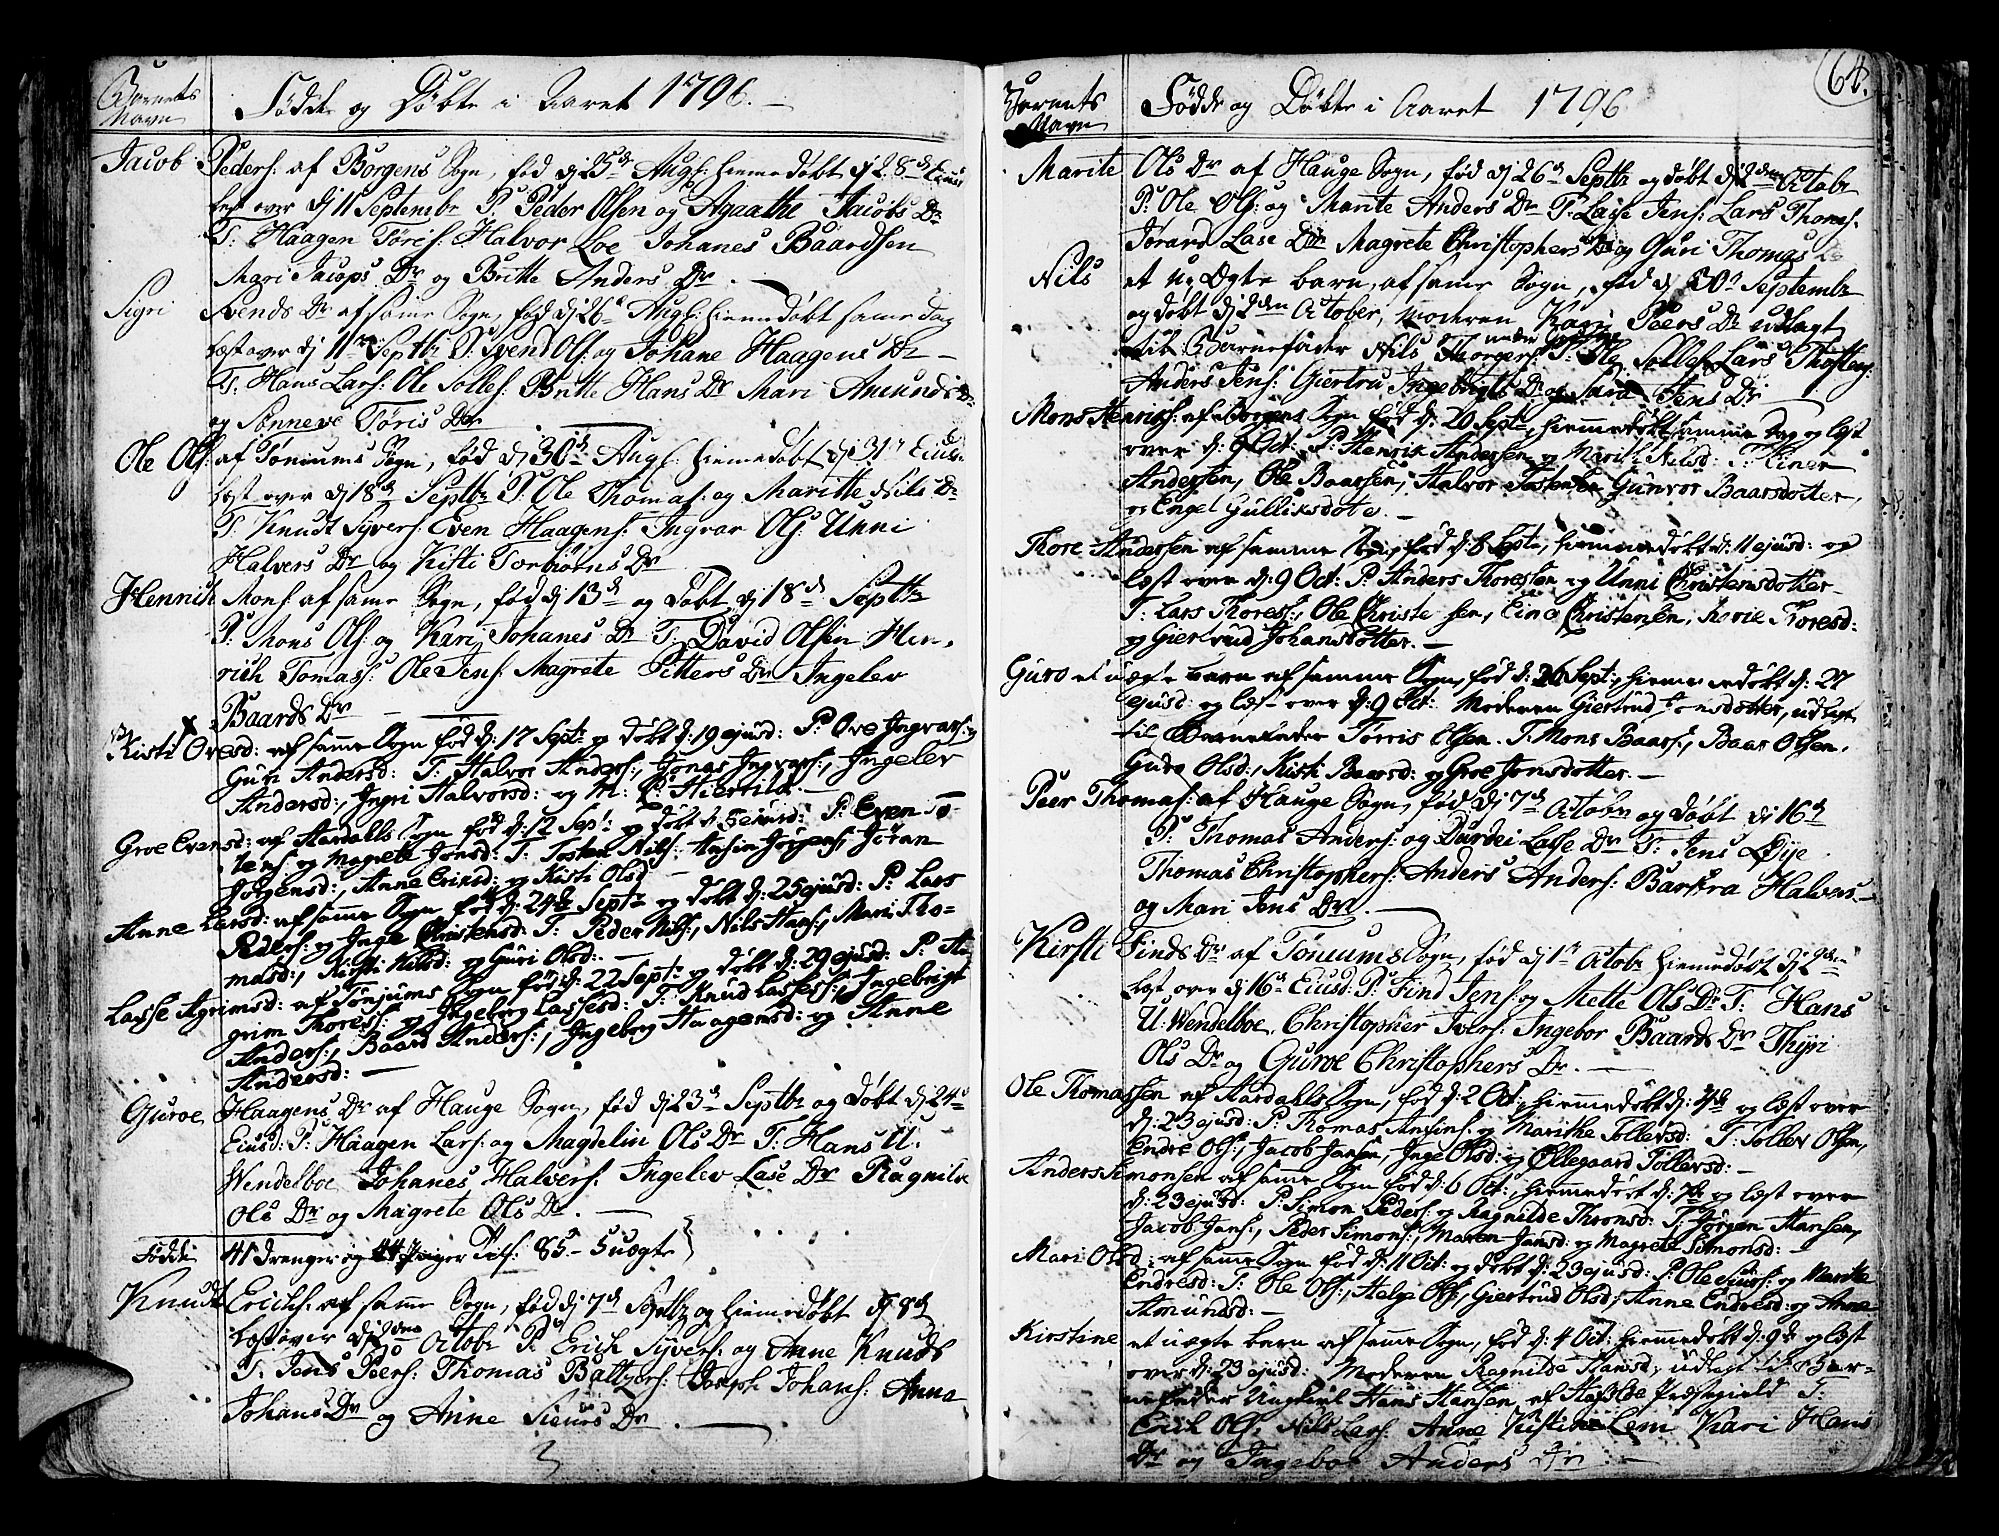 Barnets
Navn
Fødde og Døbte i Aaret 1796.
Jacob Peders: af Borgens Sogn, fød dj 25d Augs: hiemedøbt dj 28d Eiusd
lest over dj 11 Septembr P: Peder Olsen og Agaathe Jacobs Dr
T: Haagen Töris: Halvor Loe Johanes Baardsen
Mari Jacops Dr og Britte Anders Dr. -
Sigri Svends Dr af same Sogn, fød dj 26d Augs: hiemedøbt same dag
læst over dj 11te Septbr P: Svend Ols: og Johane Haagens Dr -
T: Hans Lars: Ole Solles: Britte Hans Dr Mari Amunds Dr
og Sønneve Töris Dr
Ole Ols: af Tøniums Sogn, fød dj 30d Augs: hiemedøbt dj 31te Eius:
læst over dj 18d Septbr P: Ole Thomas: og Maritte Nils Dr
T: Knudt Syvers: Even Haagens: Ingvar Ols: Unni
Halvers Dr og Kisti Torbiörns Dr
Henrich Mons: af same Sogn, fød dj 13d og Døbt dj 18d Septbr
P: Mons Ols: og Kari Johanes Dr T: David Olsen Hen-
rich Tomas: Ole Jens: Magrete Pitters Dr Ingelev
Baards Dr -
Kisti Ovesd: af samme Sogn fød d: 17 Septr og døbt d: 19 ejusd: P: Ove Ingvars: og
Guri Andersd: T: Halvor Anders:, Jonas Ingvars:, Ingelev
Andersd:, Ingri Halvorsd: og M: Hiertild. -
Groe Evensd: af Aardalls Sogn fød d: 12 Septr og døbt d: ejusd: P: Even To-
stens: og Magrete Jonsd: T: Tosten Nils: Ansin Jörgens: Jöran
Jörgensd:, Anne Eriksd: og Kisti Olsd -
Anne Larsd: af samme Sogn fød d: 24de Septr og døbt d: 25 ejusd: P: Lars
Peders: og Inge Christensd: T: Peder Nils:, Nils Haas:, Mari Tho-
masd:, Kirsti Nilsd: og Guri Olsd: -
Lasse Agrimsd: af Tønjums Sogn fød d: 22 Septr og døbt d: 29 ejusd: P: A-
grim Thoress: og Ingeborg Lassesd: T: Knud Lasses:, Ingebrigt
Anders:, Baard Anders:, Ingeborg Haagensd: og Anne
Andersd: -
Guroe Haagens Dr af Hauge Sogn, fød dj 23d Septbr og Døbt dj 24d
Eiusd: P: Haagen Lars: og Magdelin Ols Dr T: Hans U.
Wendelboe Johanes Halvers: Ingelev Lase Dr Ragnilde
Ols Dr og Magrete Ols Dr. -
Födde 41 drenger og 44 Piger Tils: 85 - 5 uægte
Knudt Erichs: af same Sogn, fød dj 7d Septbr og hiemedøbt dj 8d
læst over dj 2den Octobr P: Erich Syvers: og Anne Knuds
T: Jens Peers: Thomas Baltzers: Joseph Johans: Anna
Johans Dr og Anne Siurs Dr -
64.
Barnets
Navn
Fødde og Døbte i Aaret 1796
Marite Ols Dr af Hauge Sogn, fød dj 26d Septbr og døbt dj 2den Octobr
P: Ole Ols: og Marite Anders Dr T: Lasse Jens: Lars Thomes:
Jörand Lase Dr Magrete Christophers Dr og Guri Thomas Dr
Nils et u-Ægte barn, af same Sogn, fød dj 30d Septembr
og døbt dj 2den October, moderen Kari Peers Dr udlagt
til Barnefader Nils Thorgers: T: Ole Solles: Lars Thosten:
Anders Jens: Giertru Ingebrigts Dr og Sara Jens Dr
Mons Henrichs: af Borgens Sogn fød d: 20 Septr, hiemmedøbt samme Dag og læst
over d: 9 Oct: P: Henrik Andersen og Marith Nilsd: T: Einer
Andersen, Ole Baarsen, Halvor Tostensen Gunvor Baarsdotter,
og Engel Gulliksdote. -
Thore Andersen af samme Sogn, fød d: 8 Septr, hiemmedøbt d: 11 ejusd: og
læst over d: 9 Oct: P: Anders Thoresten og Unni Christensdotter
T: Lars Thoress:, Ole Christe sen, Eina Christensen, Thorie Thoresd:
og Giertrud Johansdotter. -
Guro et uægte barn af samme Sogn, fød d: 26 Sept:, hiemmedøbt d: 27
ejusd og læst over d: 9 Oct: Moderen Giertrud Jonsdotter, udlagt
til Barnefader Torris Olsen. T: Mons Baars:, Baar Olsen,
Guro Olsd:, Kisti Baarsd: og Groe Jonsdotter. -
Peer Thomas: af Hauge Sogn, fød dj 7d Octobr og døbt dj 16d
P: Thomas Anders: og Durdei Lasse Dr T: Jens Øye
Thomas Christophers: Anders Anders: Barbra Halvers -
og Mari Jens Dr. -
Kirsti Finds Dr af Tøniums Sogn, fød dj 1te Octobr hiemedøbt dj 2den
læst over dj 16d Eiusd: P: Find Jens: og Mette Ols Dr T: Hans
U: Wendelboe, Christopher Ivers: Ingebor Baards Dr Thyri
Ols Dr og Guroe Christophers Dr. -
Ole Thomassen af Aardahls Sogn, fød d: 2 Oct:, hiemmedøbt d: 4de og læst over
d: 23 ejusd: P: Thomas Ansins: og Marithe Tollevsd: T: Tollev Olsen,
Endre Ols:, Jacob Jansen, Inge Olsd: og Øllegaard Tollevsd: -
Anders Simonsen af samme Sogn fød d: 6 Oct:, hiemmedøbt d: 7de og læst over
d: 23 ejusd: P: Simon Peders: og Ragnilde Thronsd: T: Jörgen Hansen,
Jacob Jans:, Peder Simons:, Maren Jansd: og Magrete Simonsd: -
Mari Olsd: af samme Sogn fød d: 11 Oct: og døbt d: 23 ejusd: P: Ole Siurs: og Marithe
Endresd: T: Ole Ols:, Helge Ols:, Giertrud Olsd:, Anne Endresd: og Anne
Amundsd: -
Kirstine et uægte barn af samme Sogn, fød d: 4 Oct: hiemmedøbt d: 9de og læst
over d: 23 ejusd: Moderen Ragnilde Hansd:, udlagt til Bar-
nefader Ungkarl Hans Hansen, af Hafslde Præstegield T:
Erich Ols:, Nils Lars: Anne Kistine Lem Kari Hans
Dr og Ingebor Anders Dr: -